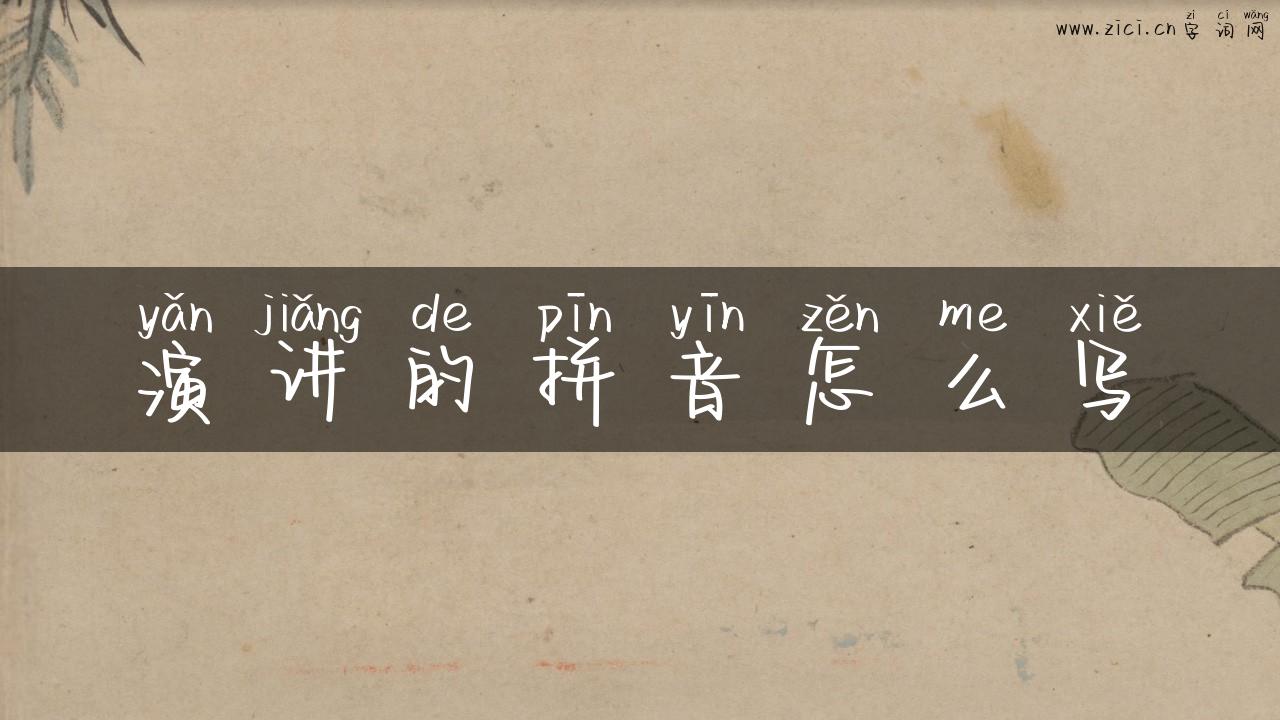 zì cí wǎng
www.zici.cn 字 词 网
yǎn jiǎng de pīn yīn zěn me xiě
演 讲 的 拼 音 怎 么 写